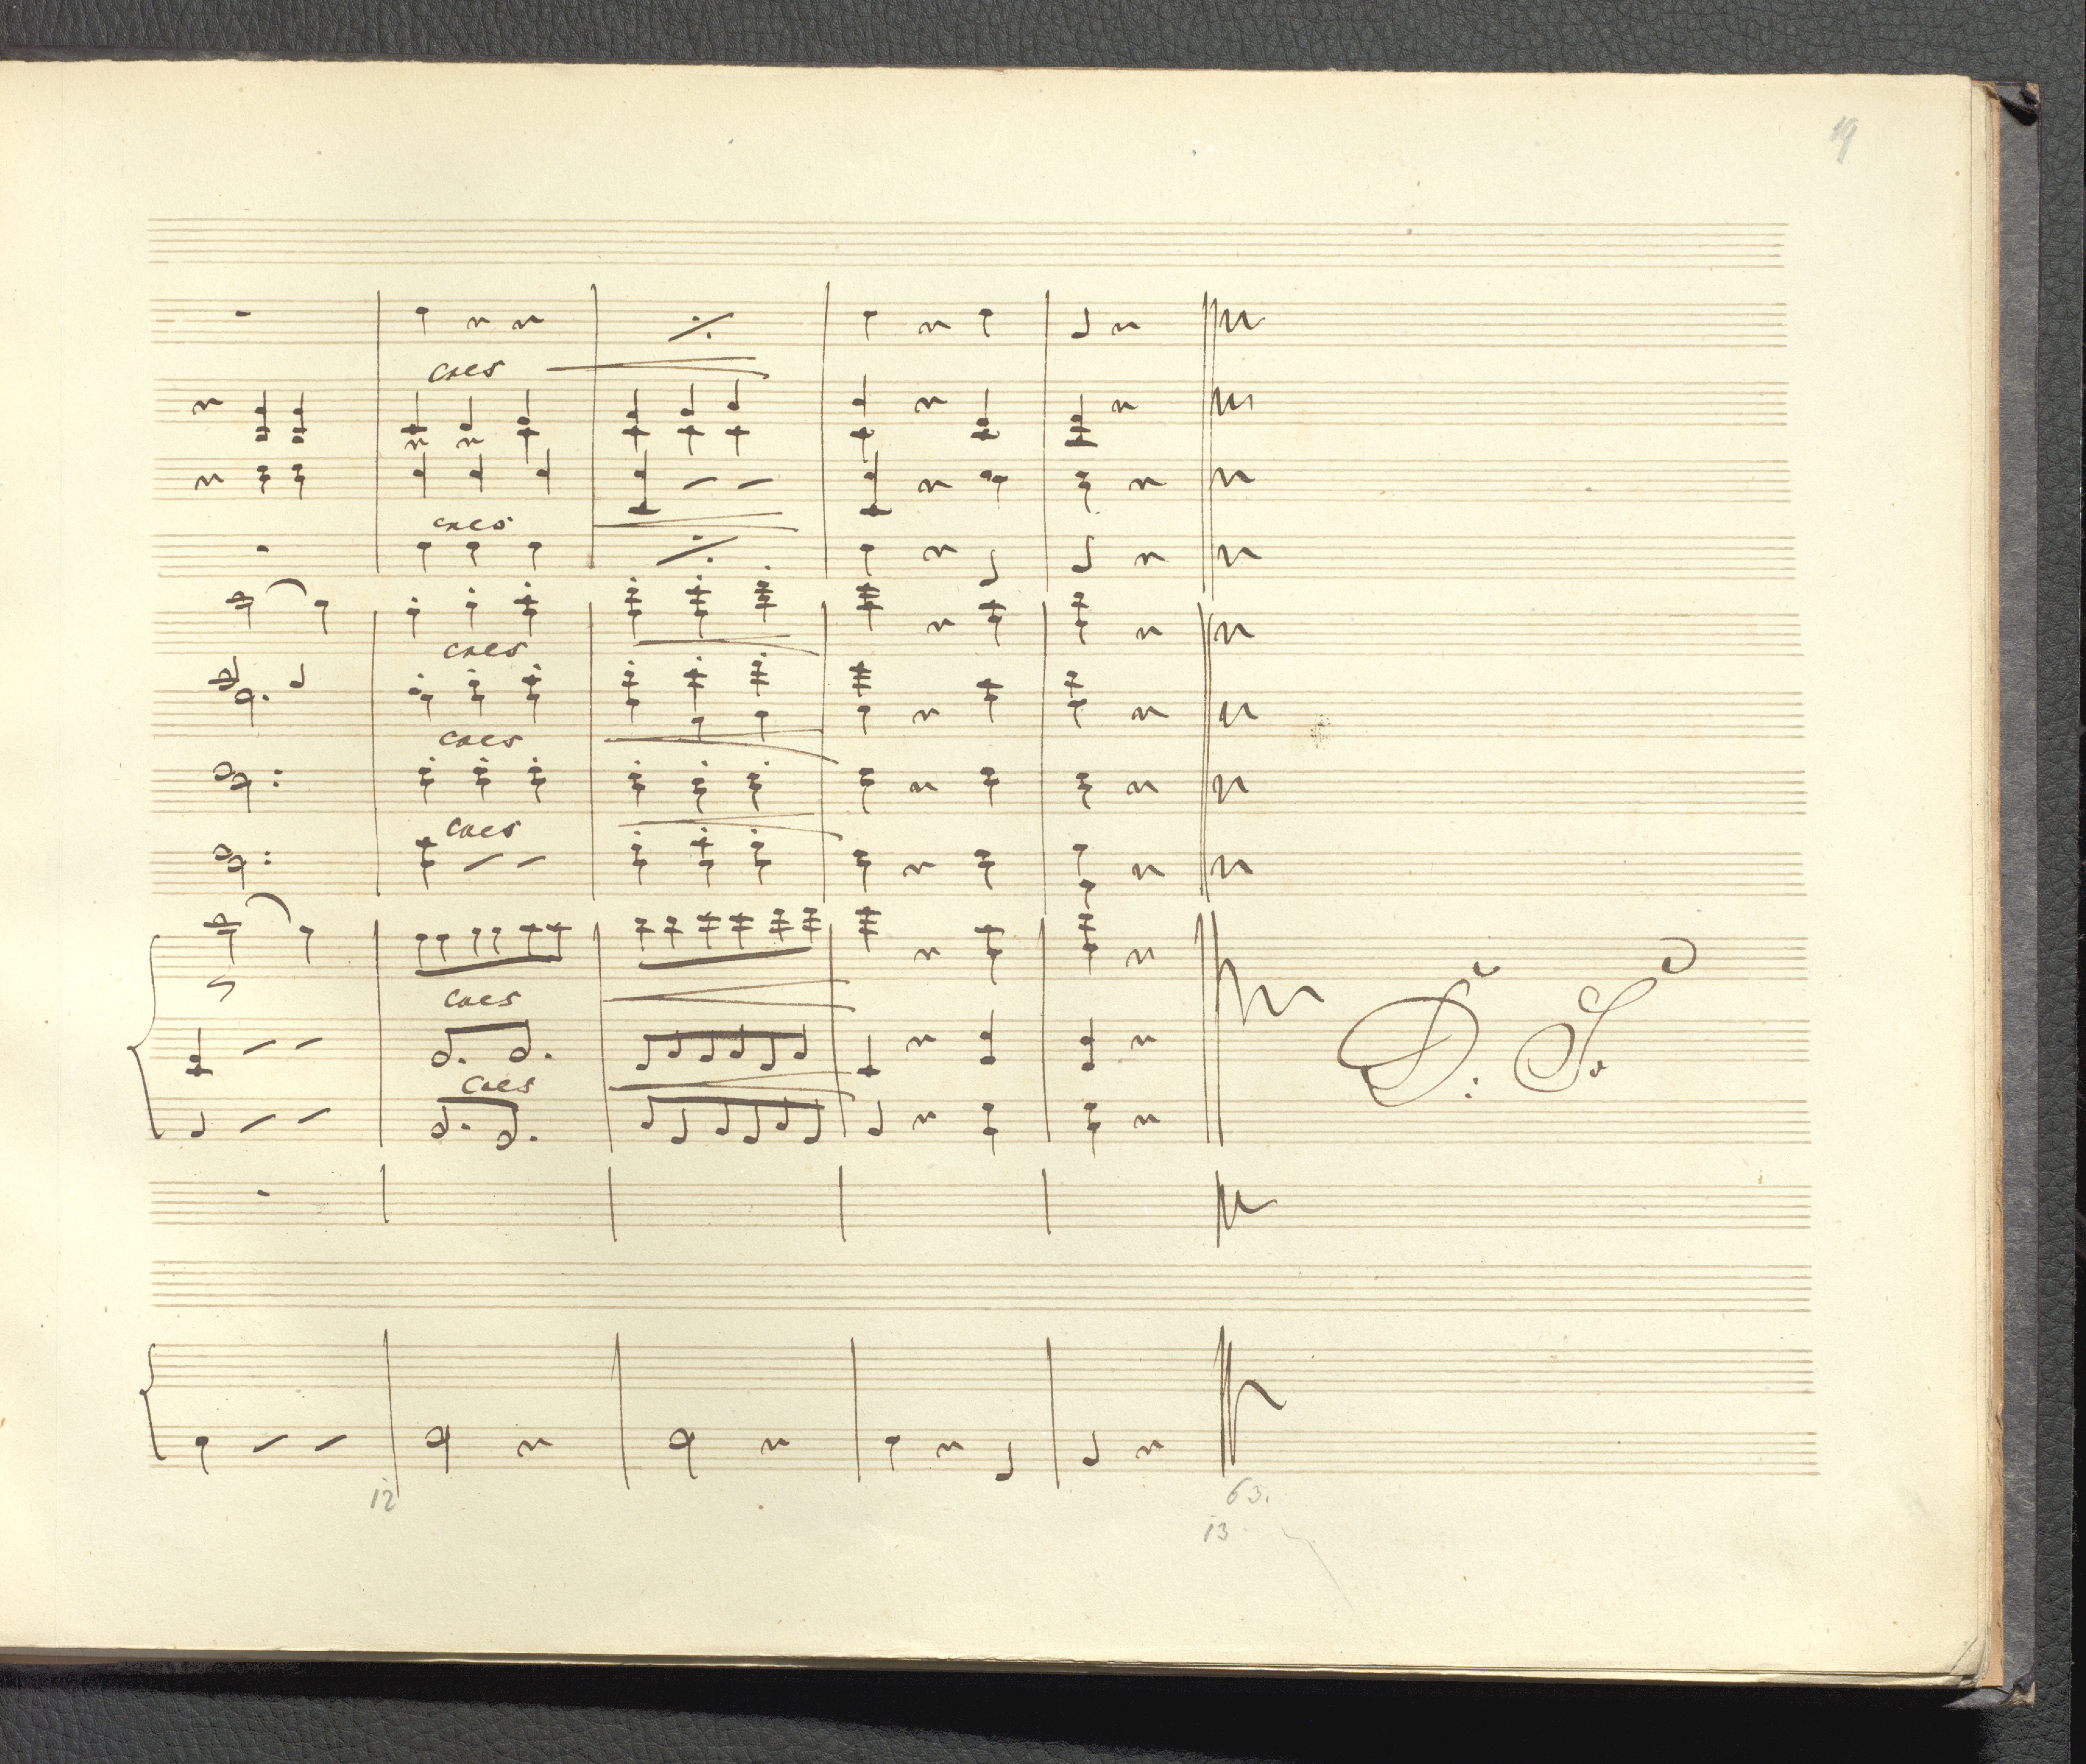 19
cres
cres
cres
cres
cres
cres
D. S.
cres
12
63.
13